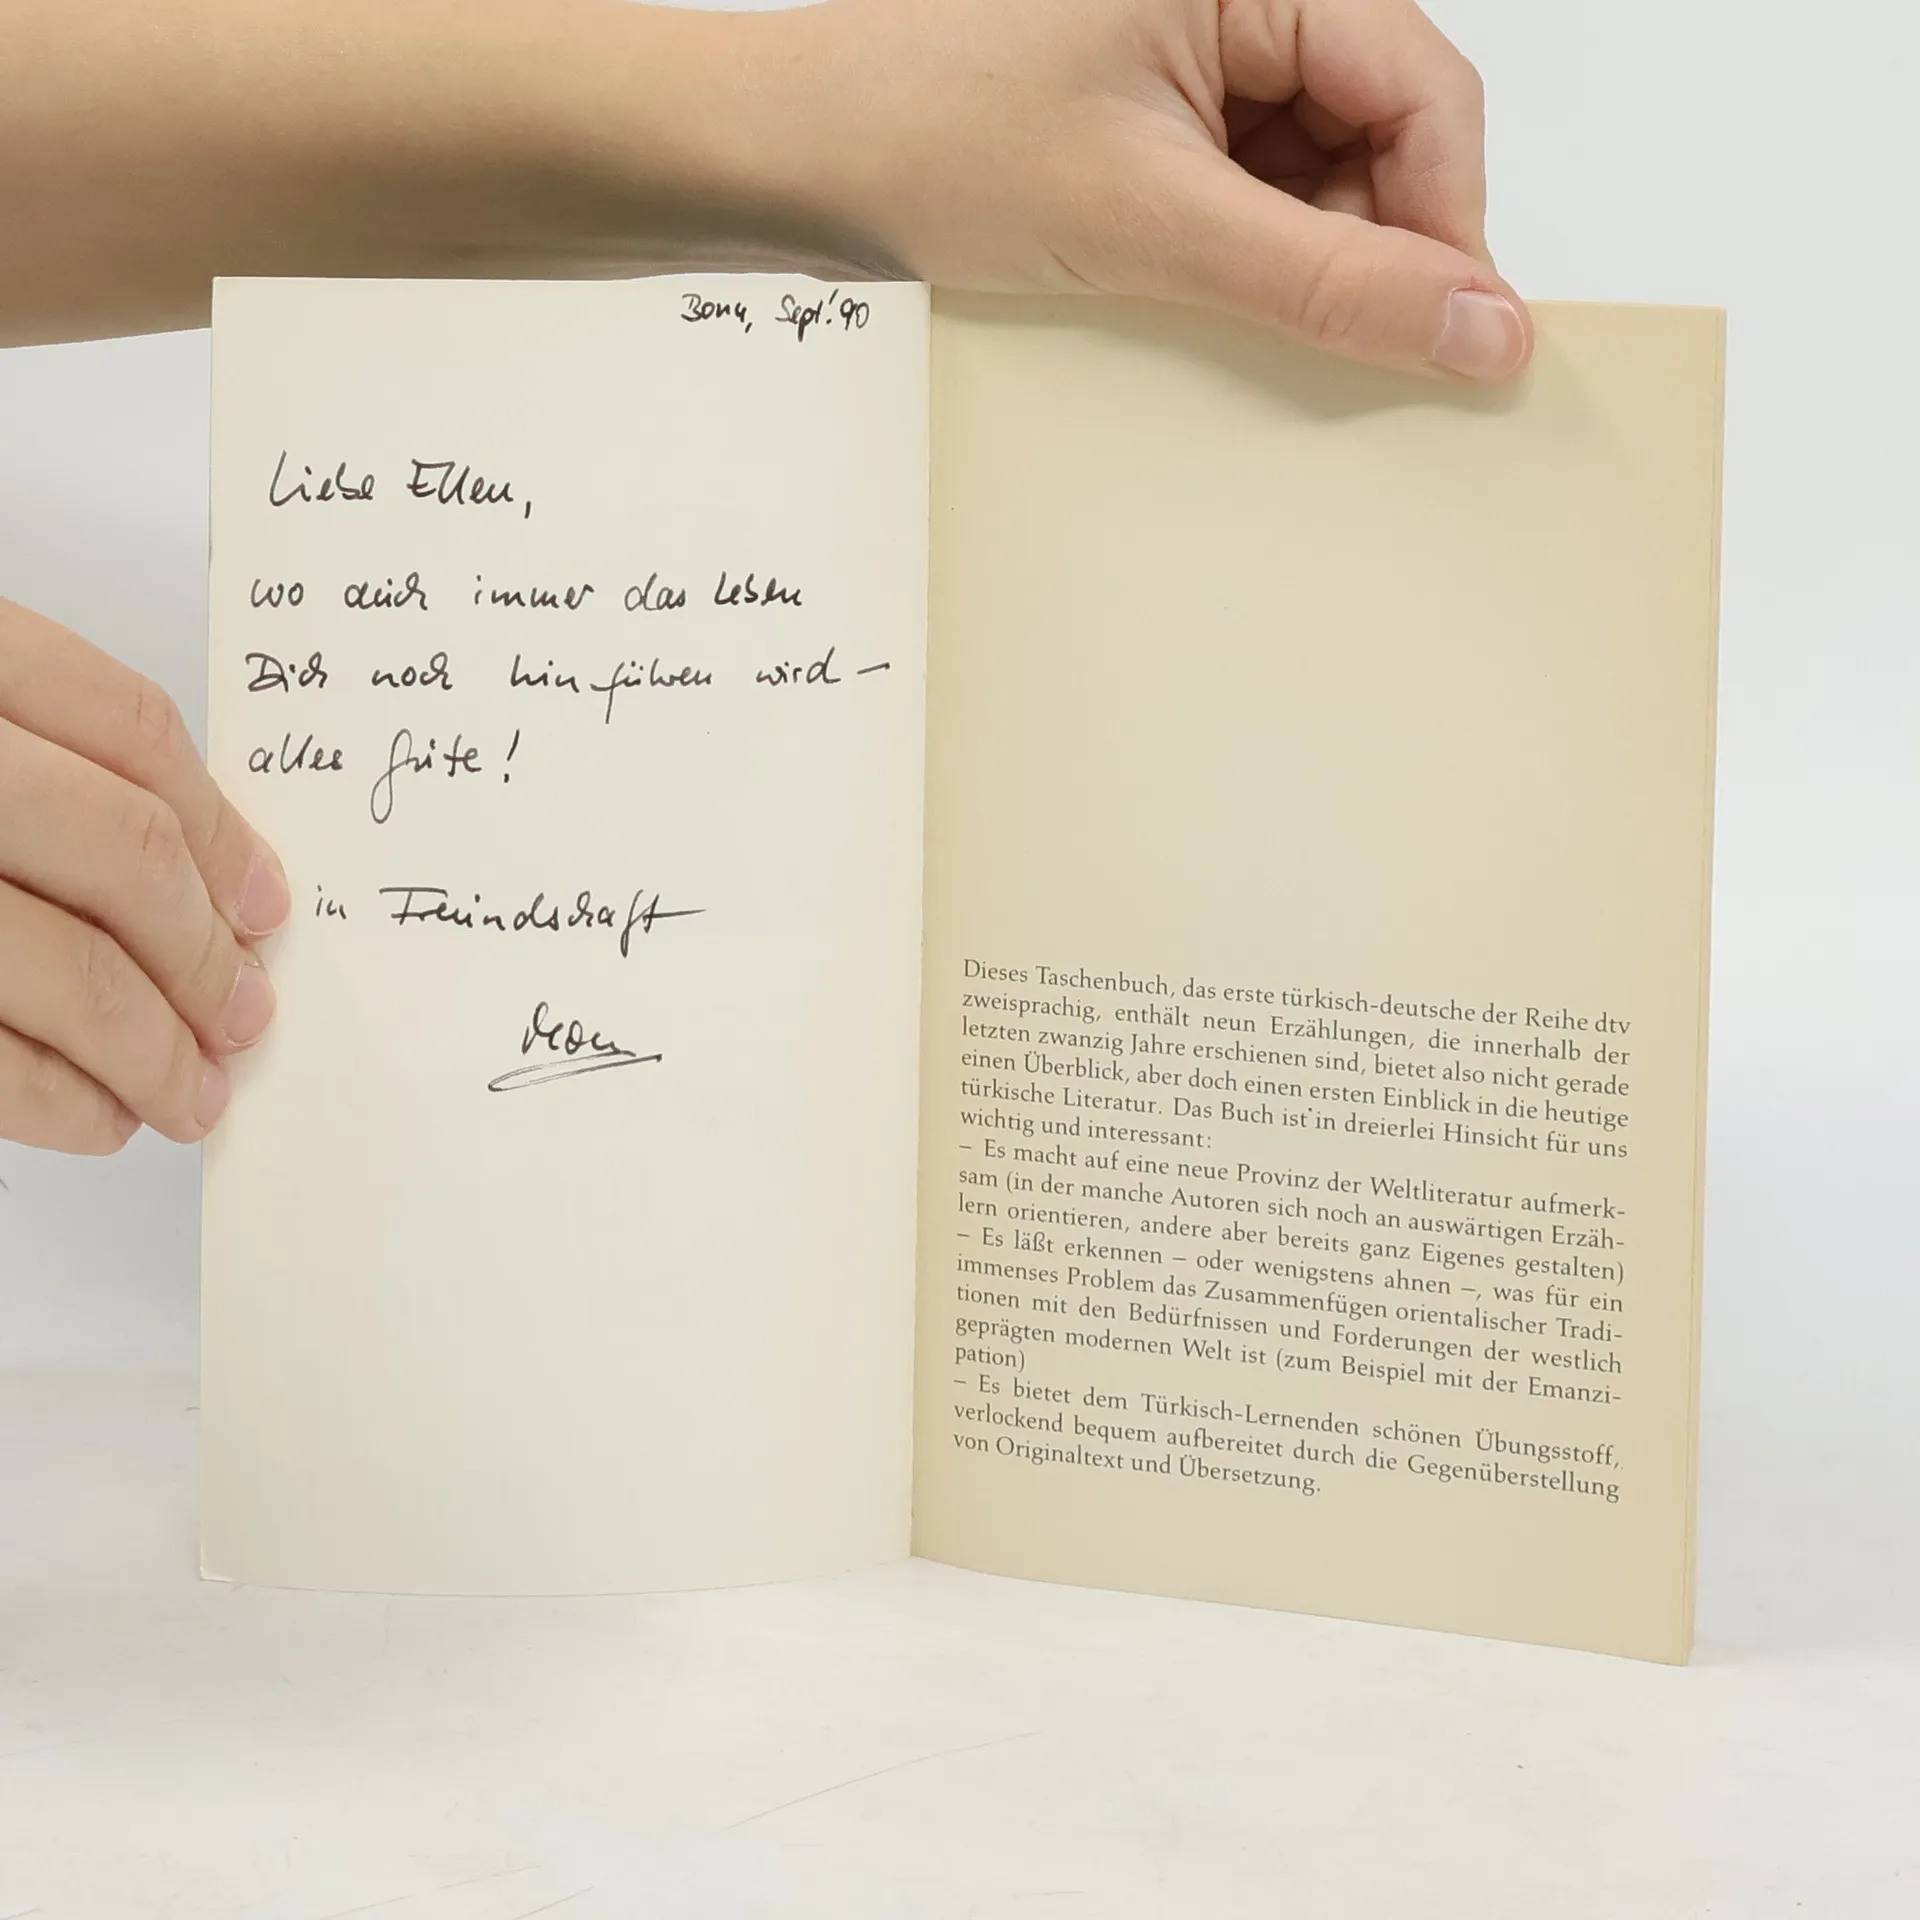 Bonn, Sept. '90
Liebe Ellen,
wo auch immer das Leben
Dich noch hinführen wird –
alles Gute!
in Freundschaft
Dieses Taschenbuch, das erste türkisch-deutsche der Reihe dtv
zweisprachig, enthält neun Erzählungen, die innerhalb der
letzten zwanzig Jahre erschienen sind, bietet also nicht gerade
einen Überblick, aber doch einen ersten Einblick in die heutige
türkische Literatur. Das Buch ist in dreierlei Hinsicht für uns
wichtig und interessant:
– Es macht auf eine neue Provinz der Weltliteratur aufmerk-
sam (in der manche Autoren sich noch an auswärtigen Erzäh-
lern orientieren, andere aber bereits ganz Eigenes gestalten)
– Es läßt erkennen – oder wenigstens ahnen –, was für ein
immenses Problem das Zusammenfügen orientalischer Tradi-
tionen mit den Bedürfnissen und Forderungen der westlich
geprägten modernen Welt ist (zum Beispiel mit der Emanzi-
pation)
– Es bietet dem Türkisch-Lernenden schönen Übungsstoff,
verlockend bequem aufbereitet durch die Gegenüberstellung
von Originaltext und Übersetzung.